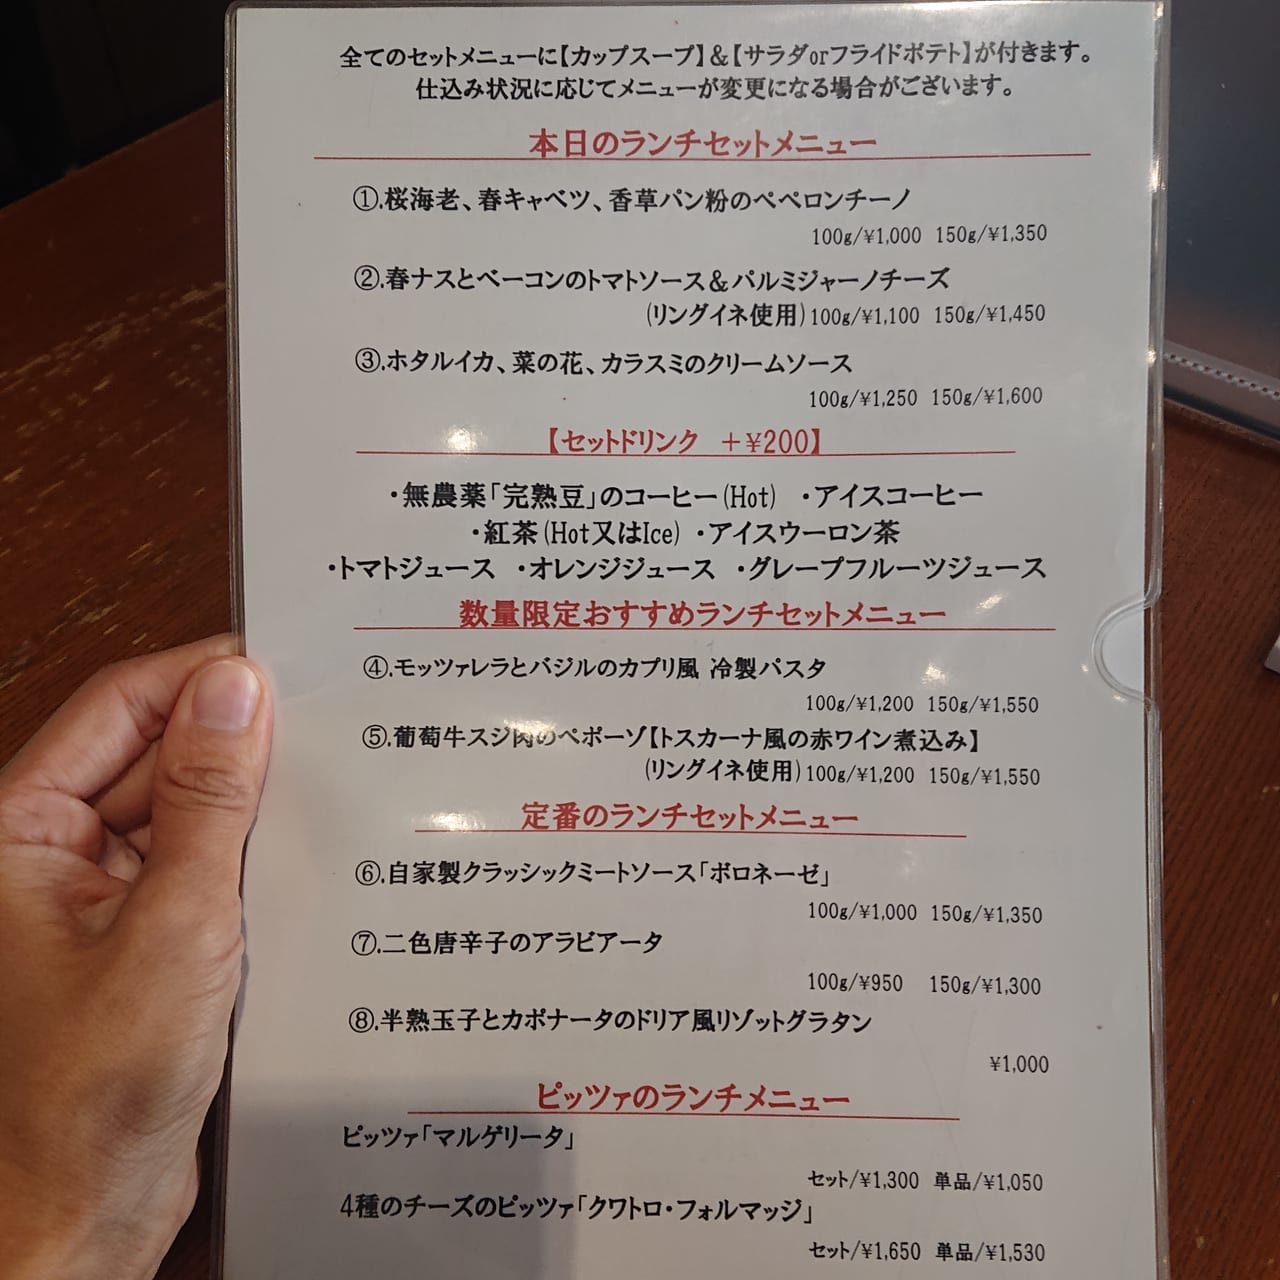 全てのセットメニューに【カップスープ】＆【サラダorフライドポテト】が付きます。
仕込み状況に応じてメニューが変更になる場合がございます。
本日のランチセットメニュー
①.桜海老、春キャベツ、香草パン粉のペペロンチーノ
100g/¥1,000 150g/¥1,350
②.春ナスとベーコンのトマトソース＆パルミジャーノチーズ
(リングイネ使用)100g/¥1,100 150g/¥1,450
③.ホタルイカ、菜の花、カラスミのクリームソース
100g/¥1,250 150g/¥1,600
【セットドリンク ＋¥200】
・無農薬「完熟豆」のコーヒー(Hot) ・アイスコーヒー
・紅茶(Hot又はIce) ・アイスウーロン茶
・トマトジュース ・オレンジジュース ・グレープフルーツジュース
数量限定おすすめランチセットメニュー
④.モッツァレラとバジルのカプリ風 冷製パスタ
100g/¥1,200 150g/¥1,550
⑤.葡萄牛スジ肉のペポーゾ【トスカーナ風の赤ワイン煮込み】
(リングイネ使用)100g/¥1,200 150g/¥1,550
定番のランチセットメニュー
⑥.自家製クラッシックミートソース「ボロネーゼ」
100g/¥1,000 150g/¥1,350
⑦.二色唐辛子のアラビアータ
100g/¥950 150g/¥1,300
⑧.半熟玉子とカポナータのドリア風リゾットグラタン
¥1,000
ピッツァのランチメニュー
ピッツァ「マルゲリータ」
セット/¥1,300 単品/¥1,050
4種のチーズのピッツァ「クワトロ・フォルマッジ」
セット/¥1,650 単品/¥1,530